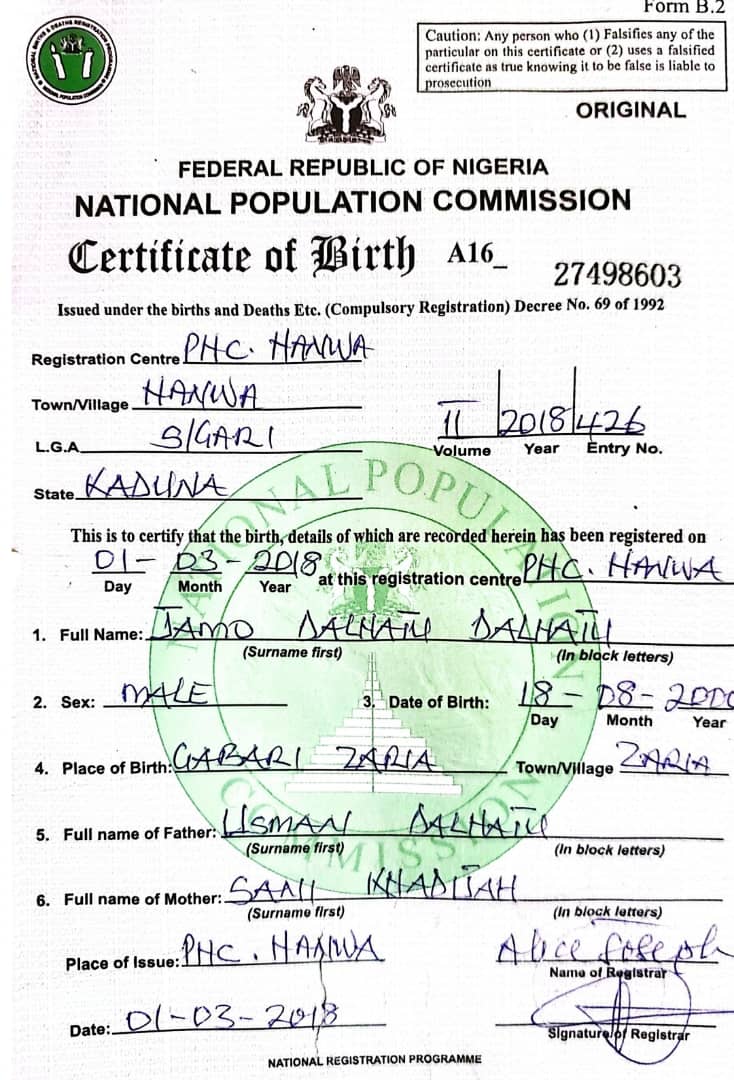 Form B.2
Caution: Any person who (1) Falsifies any of the
particular on this certificate or (2) uses a falsified
certificate as true knowing it to be false is liable to
prosecution
ORIGINAL
FEDERAL REPUBLIC OF NIGERIA
NATIONAL POPULATION COMMISSION
Certificate of Birth A16_ 27498603
Issued under the births and Deaths Etc. (Compulsory Registration) Decree No. 69 of 1992
Registration Centre PHC. HANWA
Town/Village HANWA
L.G.A. S/GARI
II 2018 426
Volume Year Entry No.
State KADUNA
NATIONAL POPULATION COMMISSION
This is to certify that the birth, details of which are recorded herein has been registered on
01- 03- 2018 at this registration centre PHC. HANWA
Day Month Year
1. Full Name: JAMO DALHATU DALHATU
(Surname first) (In block letters)
2. Sex: MALE 3. Date of Birth: 18- 08- 2000
Day Month Year
4. Place of Birth: GABARI ZARIA Town/Village ZARIA
5. Full name of Father: USMAN DALHATU
(Surname first) (In block letters)
6. Full name of Mother: SANI KHADIJAH
(Surname first) (In block letters)
Place of Issue: PHC. HANWA Alice Joseph
Name of Registrar
Date: 01-03-2018
Signature of Registrar
NATIONAL REGISTRATION PROGRAMME